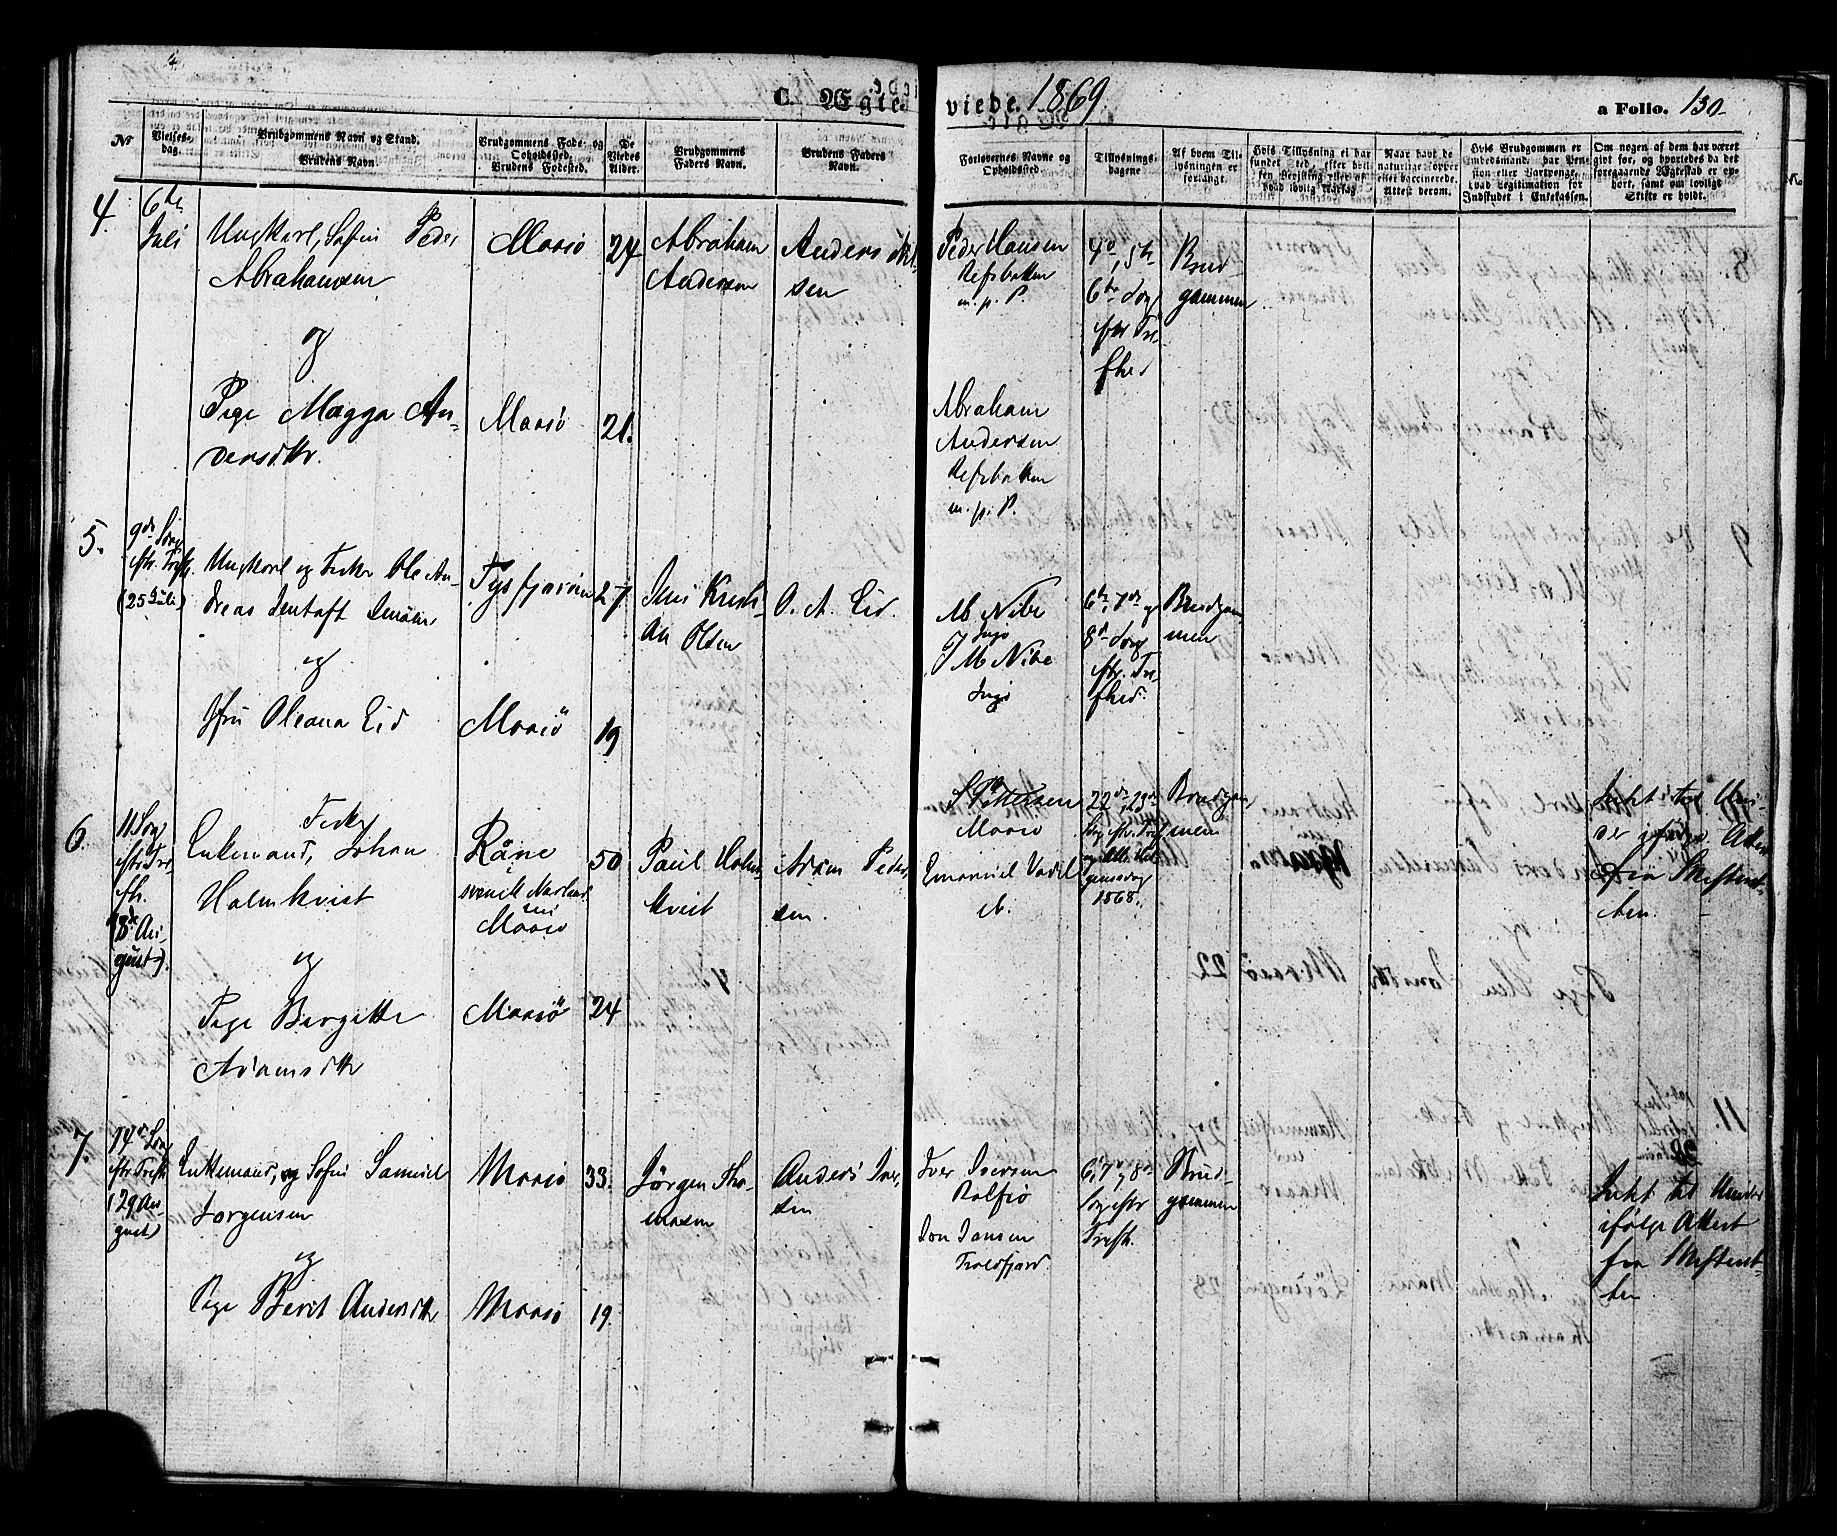 C. Ægteviede. 1869. a Folio. 130.
Nr
Vielses-
dag.
Brudgommens Navn og Stand.
Brudens Navn.
Brudgommens Føde- og
Opholdssted.
Brudens Fødested.
De
Viedes
Alder.
Brudgommens
Faders Navn.
Brudens Faders
Navn.
Forlovernes Navne og
Opholdssted.
Tillysnings-
dagene
Af hvem Til-
lysningen er
forlangt.
Hvis Tillysning ei har
fundet Sted, efter hvil-
ken Bevilling eller af
hvad lovlig Aarsag
Naar havt de
naturlige Kopper
eller vaccinerede.
Attest derom.
Hvis Brudgommen er
Embedsmand, har Pen-
sion eller Vartpenge,
hvad Legitimation for
Indskudet i Enkekassen.
Om nogen af dem har været
gift før, og hvorledes da det
foregaaende Ægteskab er op-
hørt, samt om lovligt
Skifte er holdt.
4.
6te
Juli
Ungkarl, Søfin Peder
Abrahamsen
og
Pige Magga An-
dersdtr.
Maasø
Maasø
24
21.
Abraham
Andersen
Anders
sen
Peder Hansen
Refsbotten
m. p. P.
Abraham
Andersen
Refsbotten
m. p. P.
4de, 5te
6te Søng
eftr Tre-
fhed
Brud-
gommen
5.
9de Søng
eftr. Trefh.
(25 Juli)
Ungkarl og Fisker Ole An-
dreas Jentoft
og
Jfru Oleana Eid
Tysfjorden
Maasö
27
19
Jens Kristi-
an Olsen
O. A. Eid
M Nibe
Ingö
J M Nibe
Ingö
6te, 7de og
8de Søng
eftr. Tre-
fhed.
Brudgom-
men
6.
11 Søng
eftr. Tre-
fh.
(8de Au-
gust).
Fisker
Enkemand, Johan
Holmkvist
og
Pige Bergitte
Adamsdtr
Råne
svensk Norland
Maasö
Maasö
50
24
Paul Holm-
kvist
Adam Peder-
sen.
Pettersen
Maasö
Emanuel
22de, 23de
Søng eftr. Trefh
og Alle Hel-
gensdag
1868.
Brudgom-
men
Skilt ved
ifølge Attest
fra Skifteret-
ten.
7.
14de Søng
eftr Trefh
(29 Au-
gust)
Enkemand, og Søfin Samuel
Jørgensen
og
Pige Berit Andersdtr
Maasö
Maasö
33.
19.
Jørgen Tho-
masen
Anders Iver-
sen
Iver Iversen
Rolfsö
Jon Jansen
Troldfjord.
6, 7 og 8de
Søng eftr
Trefh.
Brud-
gommen
ifølge Attest
fra Skifteret-
ten